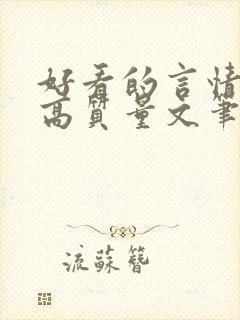 好看的言情
高质量文笔
流蘇簪